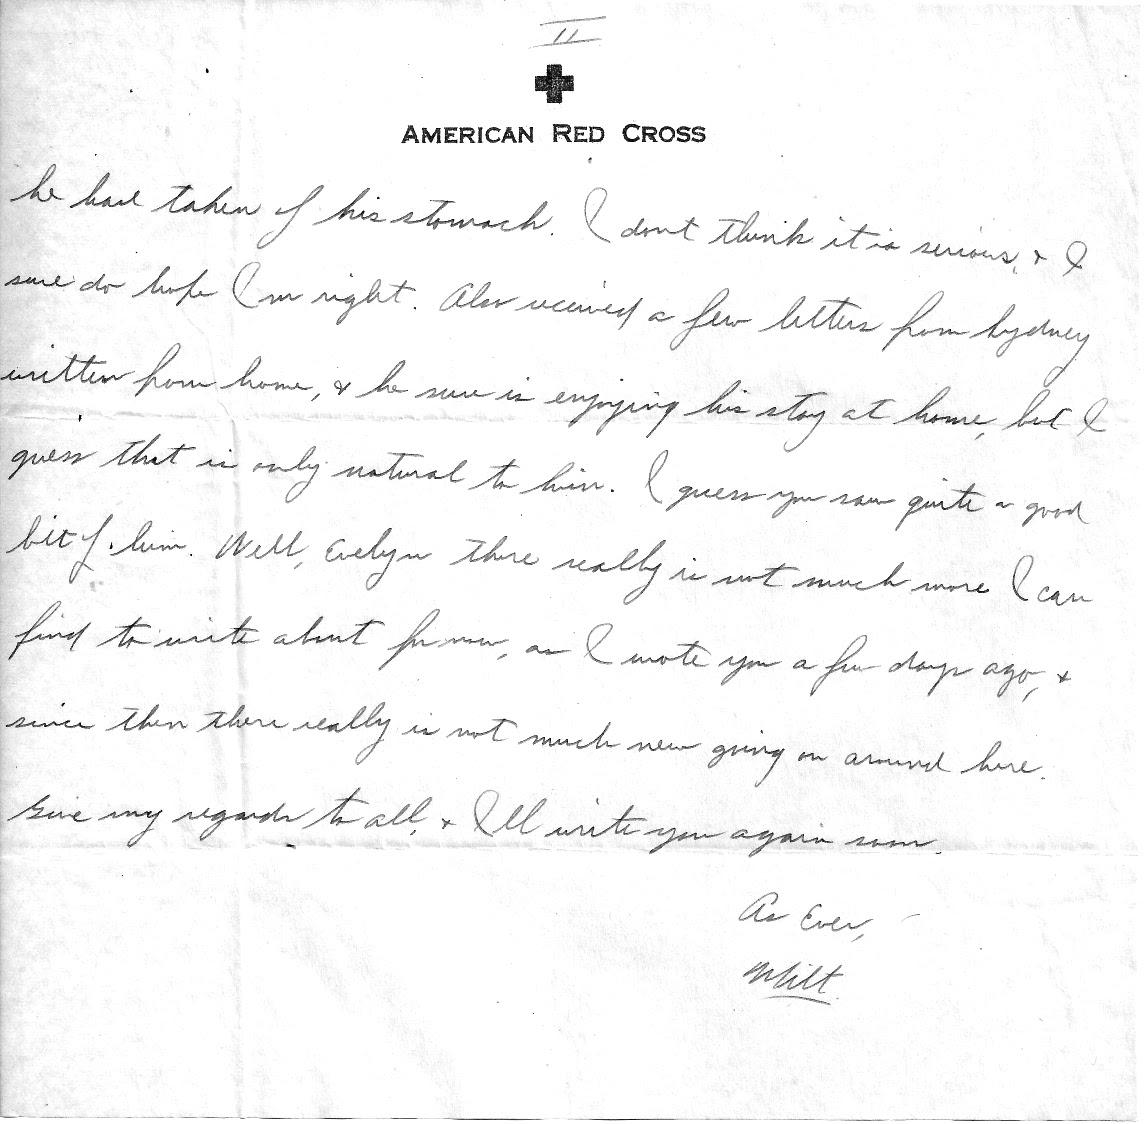 II
AMERICAN RED CROSS
he had taken of his stomach. I don't think it is serious, & I
sure do hope I'm right. Also received a few letters from Sydney
written from home, & he sure is enjoying his stay at home, but I
guess that is only natural to him. I guess you saw quite a good
bit of him. Well, Evelyn there really is not much more I can
find to write about for now, as I wrote you a few days ago, &
since then there really is not much new going on around here.
Give my regards to all, & I'll write you again soon.
As Ever,
Milt